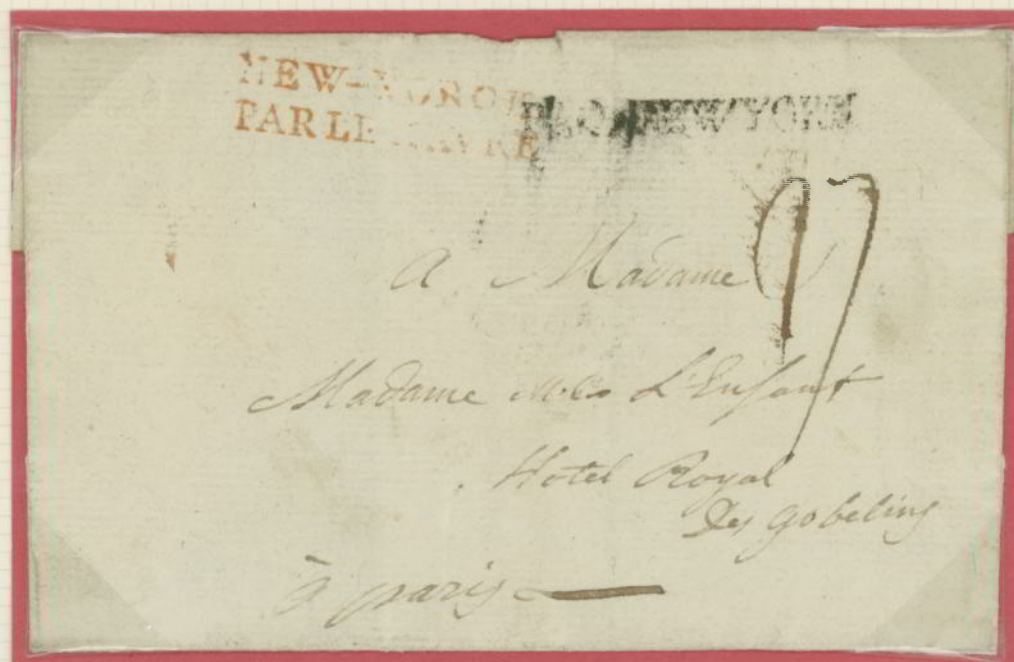 NEW-YORCK
PAR LE HAVRE
PAQ NEW YORK
17
A Madame
Madame L'Enfant
Hotel Royal
des gobelins
à paris